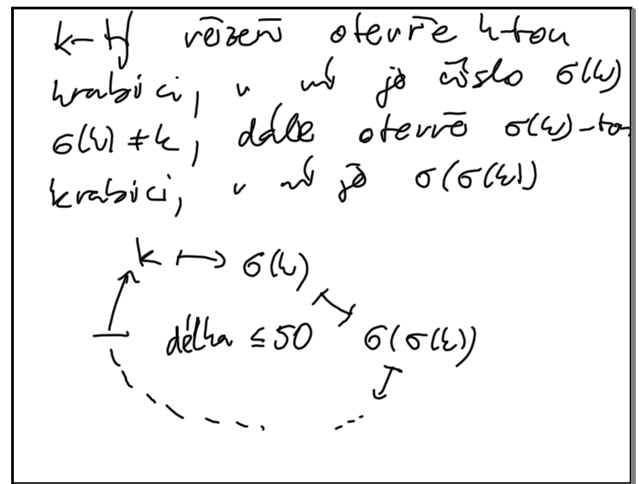 k-tý vězeň otevře k-tou
krabici, v ní je číslo σ(k)
σ(k) ≠ k, dále otevře σ(k)-tou
krabici, v ní je σ(σ(k))
k ↦ σ(k)
délka ≤ 50 σ(σ(k))
...